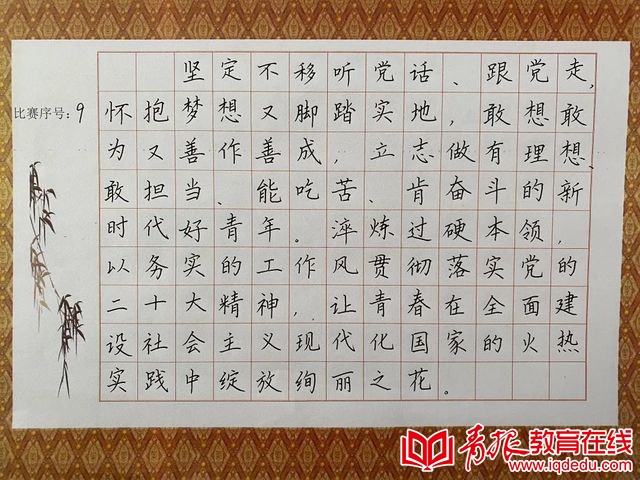 坚定不移听党话、跟党走,
比赛序号:9
怀抱梦想又脚踏实地,敢想敢
为又善作善成,立志做有理想、
敢担当、能吃苦、肯奋斗的新
时代好青年。淬炼过硬本领,
以务实的工作风贯彻落实党的
二十大精神,让青春在全面建
设社会主义现代化国家的火热
实践中绽放绚丽之花。
青报教育在线
www.iqdedu.com